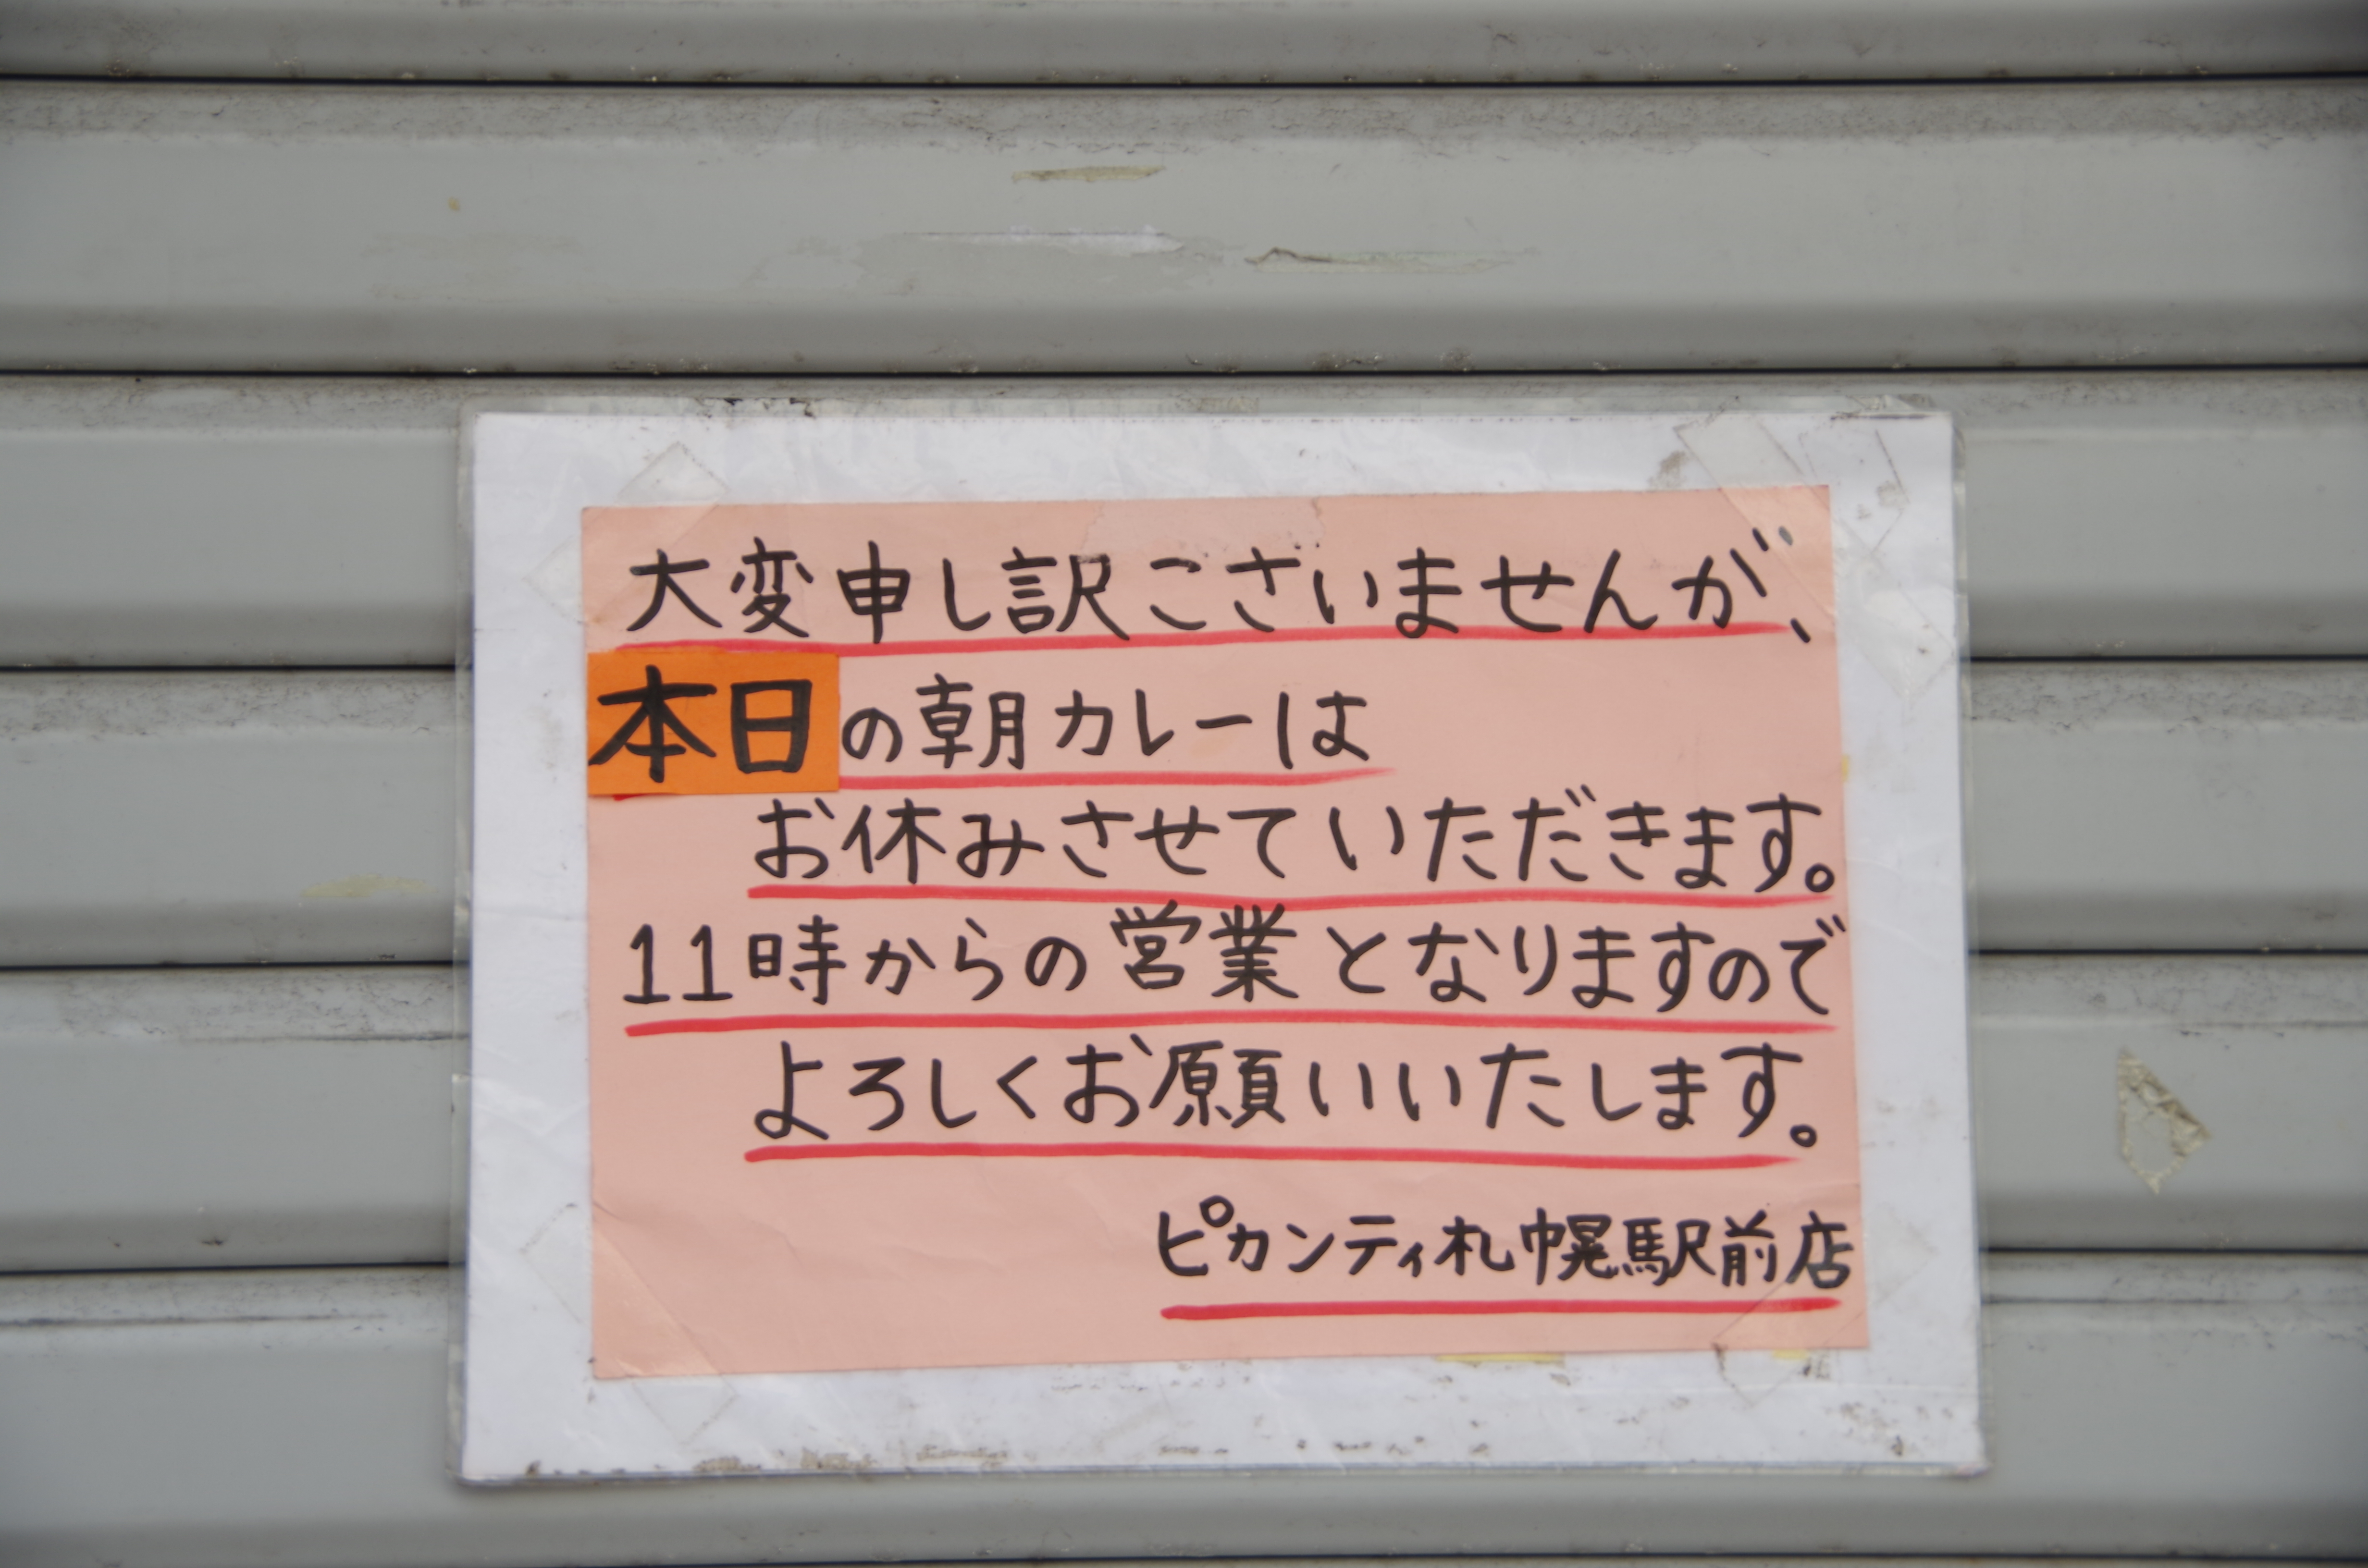 大変申し訳ございませんが、
本日の朝カレーは
お休みさせていただきます。
11時からの営業となりますので
よろしくお願いいたします。
ピカンティ札幌駅前店